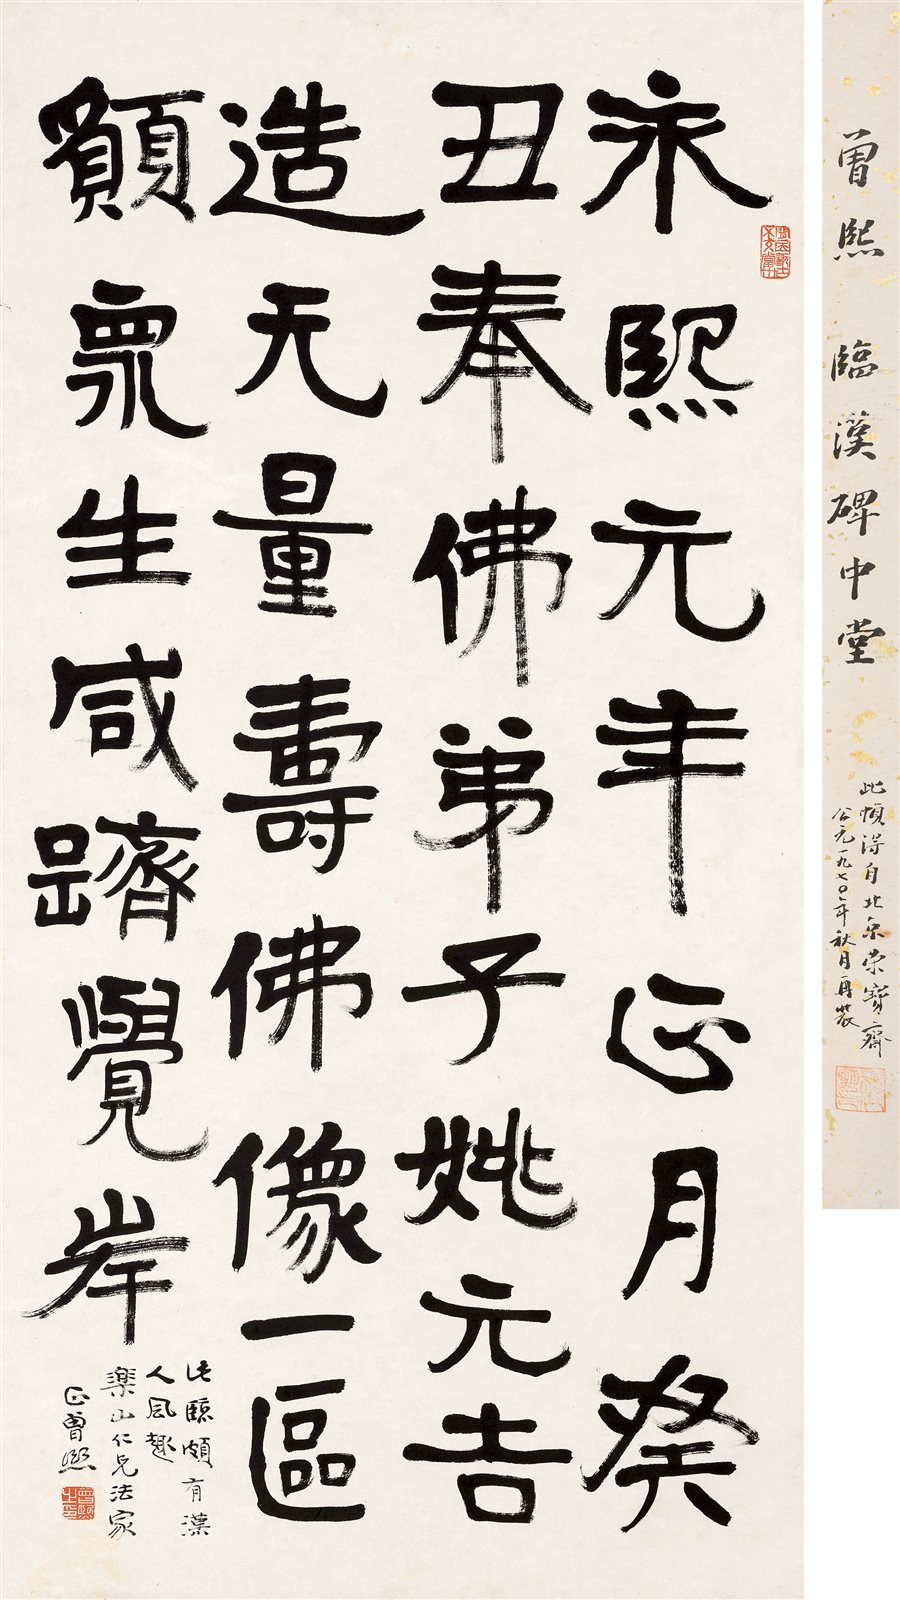 永熙元年正月癸
丑奉佛弟子姚元吉
造无量壽佛像一區
願眾生咸躋覺岸
此臨頗有漢
人風趣
樂山仁兄法家
正曾熙
曾熙臨漢碑中堂
此幀得自北京荣寶齋
公元一九七〇年秋月再裝